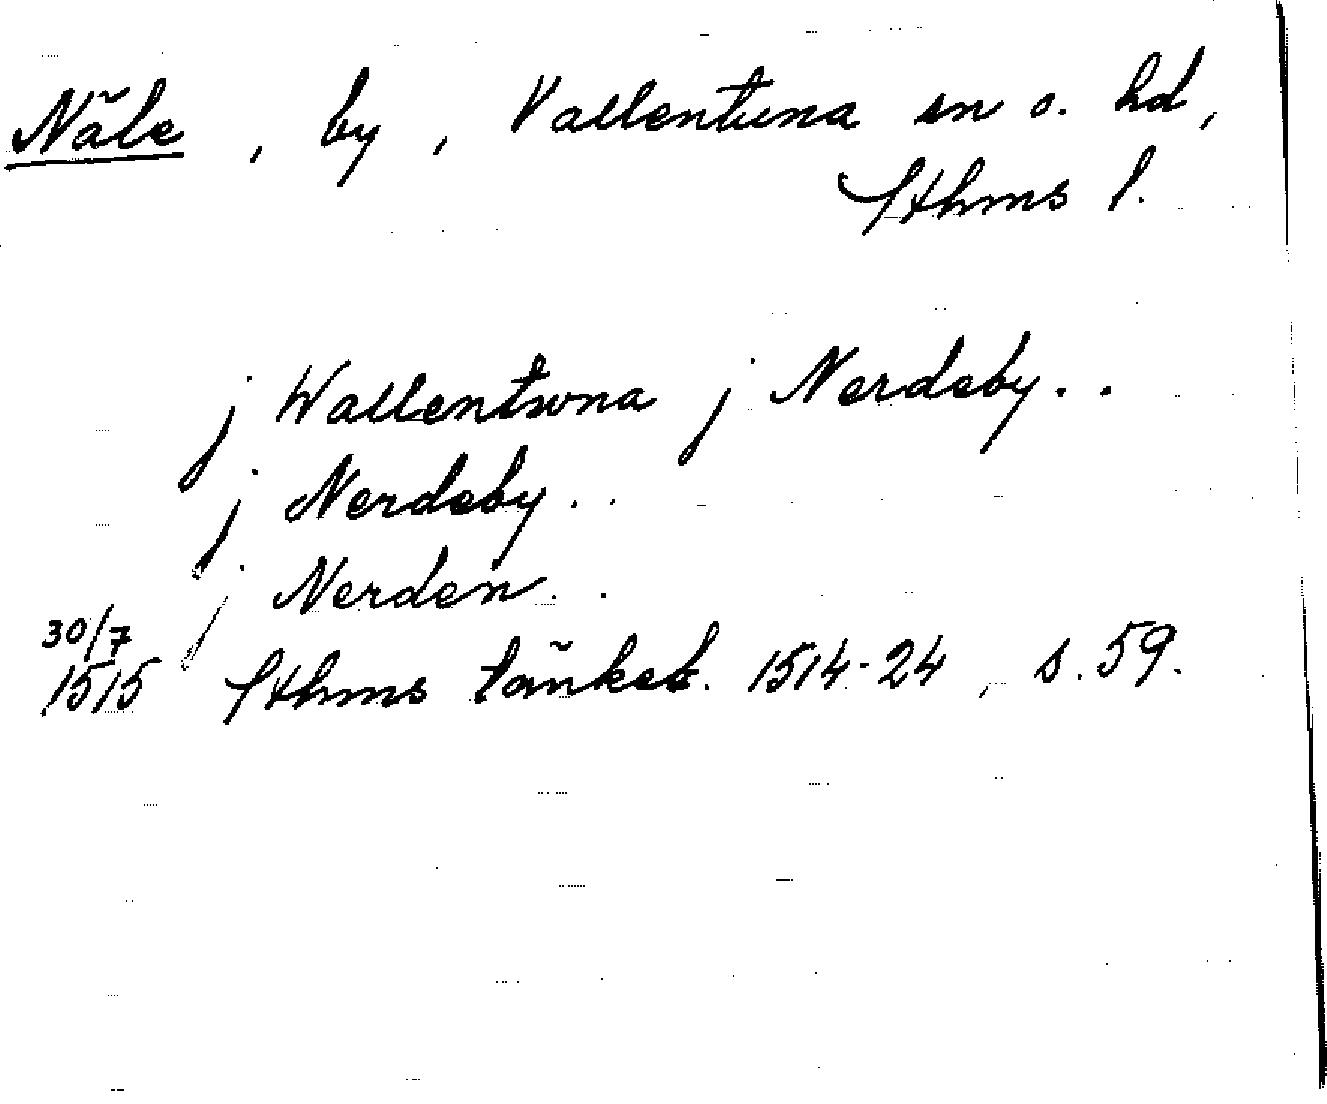 Näle, by, Vallentuna sn o. hd,
Sthms l.
j Wallentwna j Nerdeby..
j Nerdeby..
j Nerden..
30/7
1515 Sthms tänkeb. 1514-24, s. 59.